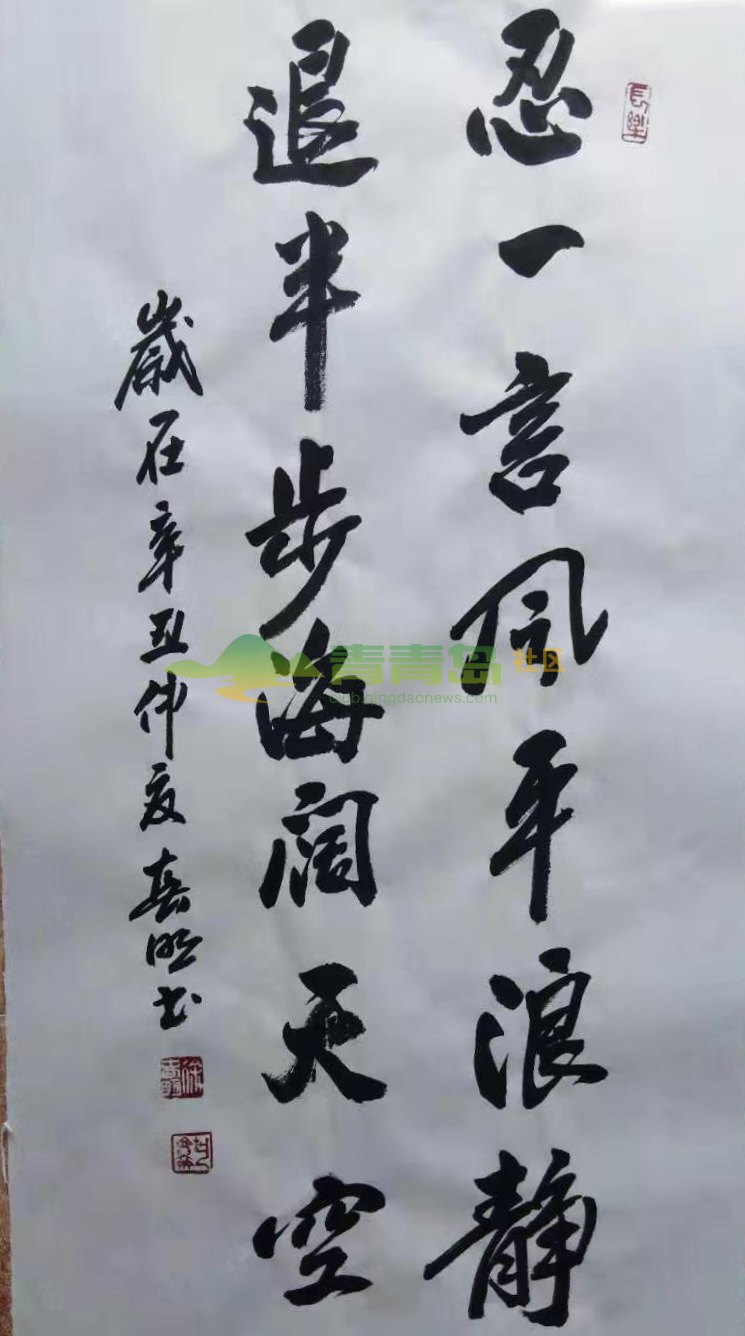 忍一言风平浪静
退半步海阔天空
歳在辛丑仲夏喜明书
长乐
青青岛社区
club.qingdaonews.com